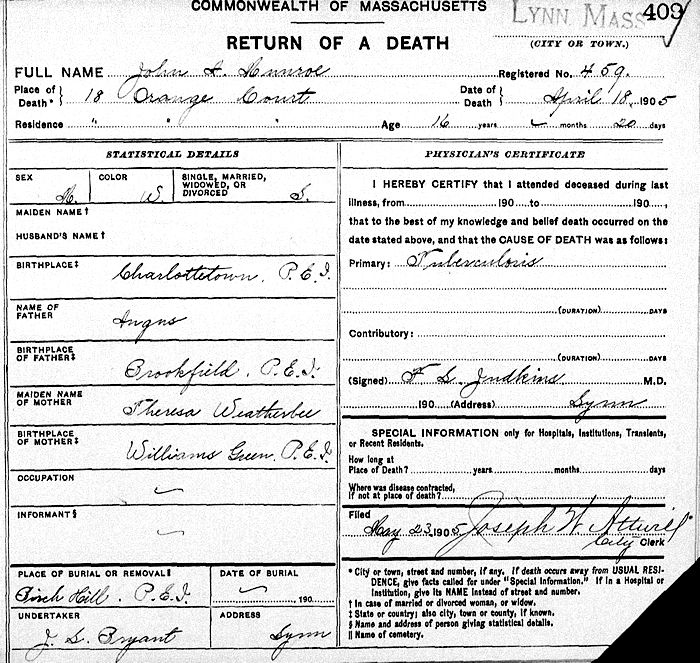 COMMONWEALTH OF MASSACHUSETTS
LYNN MASS
409
RETURN OF A DEATH
(CITY OR TOWN.)
FULL NAME John A. Munroe Registered No. 459.
Place of Death* } 18 Orange Court Date of Death } April 18, 1905
Residence " " " Age 16 years - months 20 days
STATISTICAL DETAILS
SEX M. COLOR W. SINGLE, MARRIED, WIDOWED, OR DIVORCED S.
MAIDEN NAME †
HUSBAND'S NAME †
BIRTHPLACE ‡ Charlottetown, P.E.I.
NAME OF FATHER Angus
BIRTHPLACE OF FATHER ‡ Brookfield, P.E.I.
MAIDEN NAME OF MOTHER Theresa Weatherbee
BIRTHPLACE OF MOTHER ‡ Williams Green, P.E.I.
OCCUPATION
INFORMANT §
PLACE OF BURIAL OR REMOVAL ‖ Birch Hill, P.E.I. DATE OF BURIAL 190
UNDERTAKER J. S. Bryant ADDRESS Lynn
PHYSICIAN'S CERTIFICATE
I HEREBY CERTIFY that I attended deceased during last
illness, from 190 to 190 ,
that to the best of my knowledge and belief death occurred on
date stated above, and that the CAUSE OF DEATH was as follows:
Primary: Tuberculosis
(DURATION) DAYS
Contributory:
(DURATION) DAYS
(Signed) F. S. Judkins M.D.
190 (Address) Lynn
SPECIAL INFORMATION only for Hospitals, Institutions, Transients,
or Recent Residents.
How long at
Place of Death? years months days
Where was disease contracted,
if not at place of death?
Filed
May 23, 1905 Joseph W. Attwill
City Clerk
* City or town, street and number, if any. If death occurs away from USUAL RESI-
DENCE, give facts called for under "Special Information." If in a Hospital or
Institution, give its NAME instead of street and number.
† In case of married or divorced woman, or widow.
‡ State or country; also city, town or county, if known.
§ Name and address of person giving statistical details.
‖ Name of cemetery.